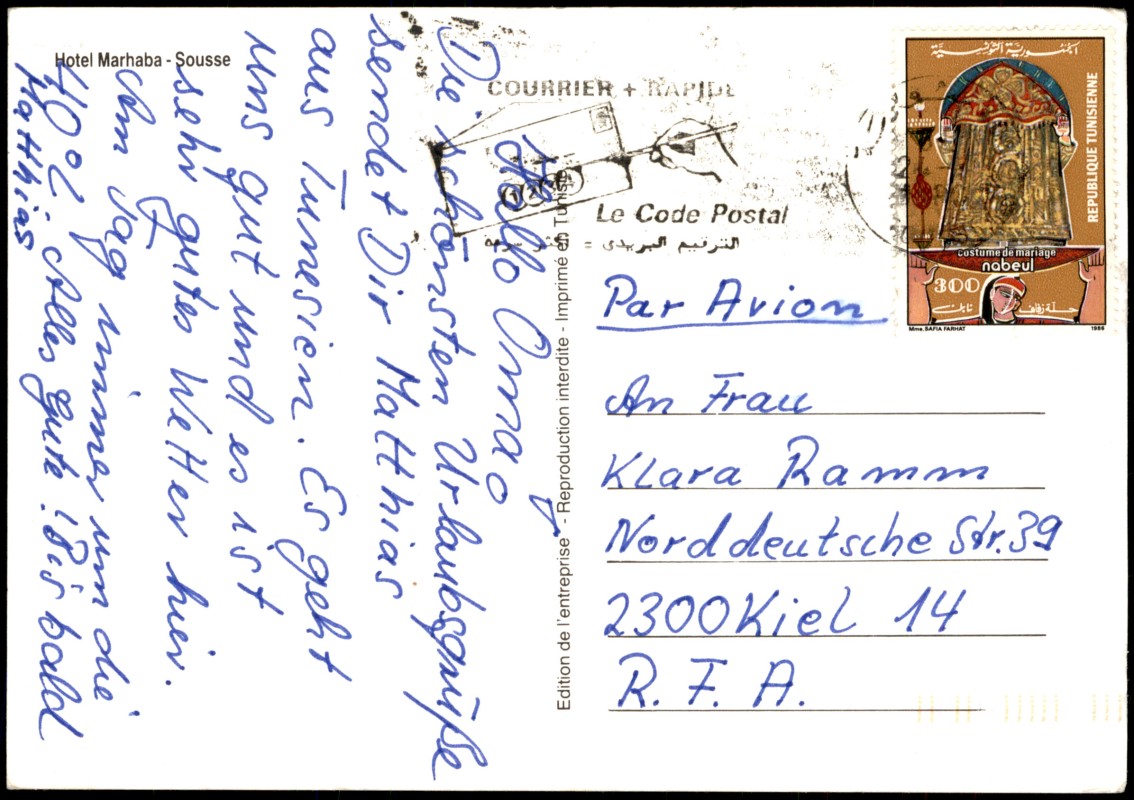 Hotel Marhaba - Sousse
Hallo Oma!
Die schönsten Urlaubsgrüße
sendet Dir Matthias
aus Tunesien. Es geht
uns gut und es ist
sehr gutes Wetter hier.
Am Tag immer um die
40°C. Alles gute! Bis bald
Matthias
Edition de l'entreprise - Reproduction interdite - Imprimé en Tunisie
COURRIER + RAPIDE
Le Code Postal
الترقيم البريدي =
الجمهورية التونسية
REPUBLIQUE TUNISIENNE
costume de mariage
nabeul
300
حلة زفاف نابل
Mme. SAFIA FARHAT 1986
Par Avion
An Frau
Klara Ramm
Norddeutsche Str. 39
2300 Kiel 14
R. F. A.